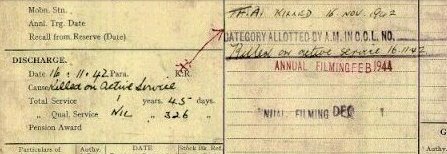 Mobn. Stn.
Annl. Trg. Date
Recall from Reserve (Date)
DISCHARGE.
Date 16.11.42 Para. K.R.
Cause Killed on Active Service
Total Service 1 years. 45 days.
„ Qual. Service Nil „ 326 „
Pension Award
Particulars of Authy. DATE Stock Bk. Ref.
KILLED 16 NOV. 1942
CATEGORY ALLOTTED BY A.M. IN C.O.L. NO.
Killed on active service 16.11.42
ANNUAL FILMING FEB 1944
NUAL FILMING DEC
G
Authy.